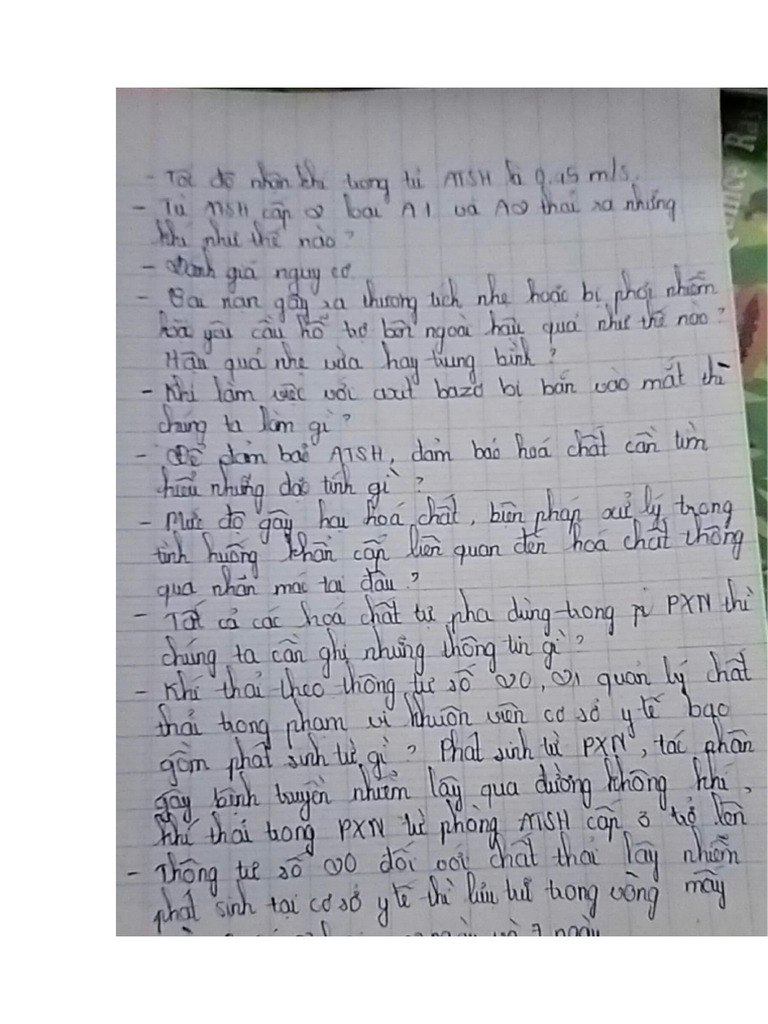 - Tốc độ nhân khí trong tủ ATSH là 0.45 m/s.
- Tủ ATSH cấp 2 loại A1 và A2 thải ra những
khí như thế nào?
- Đánh giá nguy cơ
- Tai nạn gây ra thương tích nhẹ hoặc bị phơi nhiễm
mà yêu cầu hỗ trợ bên ngoài hậu quả như thế nào?
Hậu quả nhẹ vừa hay trung bình?
- Khi làm việc với axit bazơ bị bắn vào mắt thì
chúng ta làm gì?
- Để đảm bảo ATSH, đảm bảo hoá chất cần tìm
hiểu những đặc tính gì?
- Mức độ gây hại hoá chất, biện pháp xử lý trong
tình huống khẩn cấp liên quan đến hoá chất thông
qua nhãn mác tại đâu?
- Tất cả các hoá chất tự pha dùng trong PXN thì
chúng ta cần ghi những thông tin gì?
- Khí thải theo thông tư số 20, 21 quản lý chất
thải trong phạm vi khuôn viên cơ sở y tế bao
gồm phát sinh từ gì? Phát sinh từ PXN, tác nhân
gây bệnh truyền nhiễm lây qua đường không khí,
khí thải trong PXN từ phòng ATSH cấp 3 trở lên
- Thông tư số 20 đối với chất thải lây nhiễm
phát sinh tại cơ sở y tế thì lưu trữ trong vòng mấy
và 7 ngày